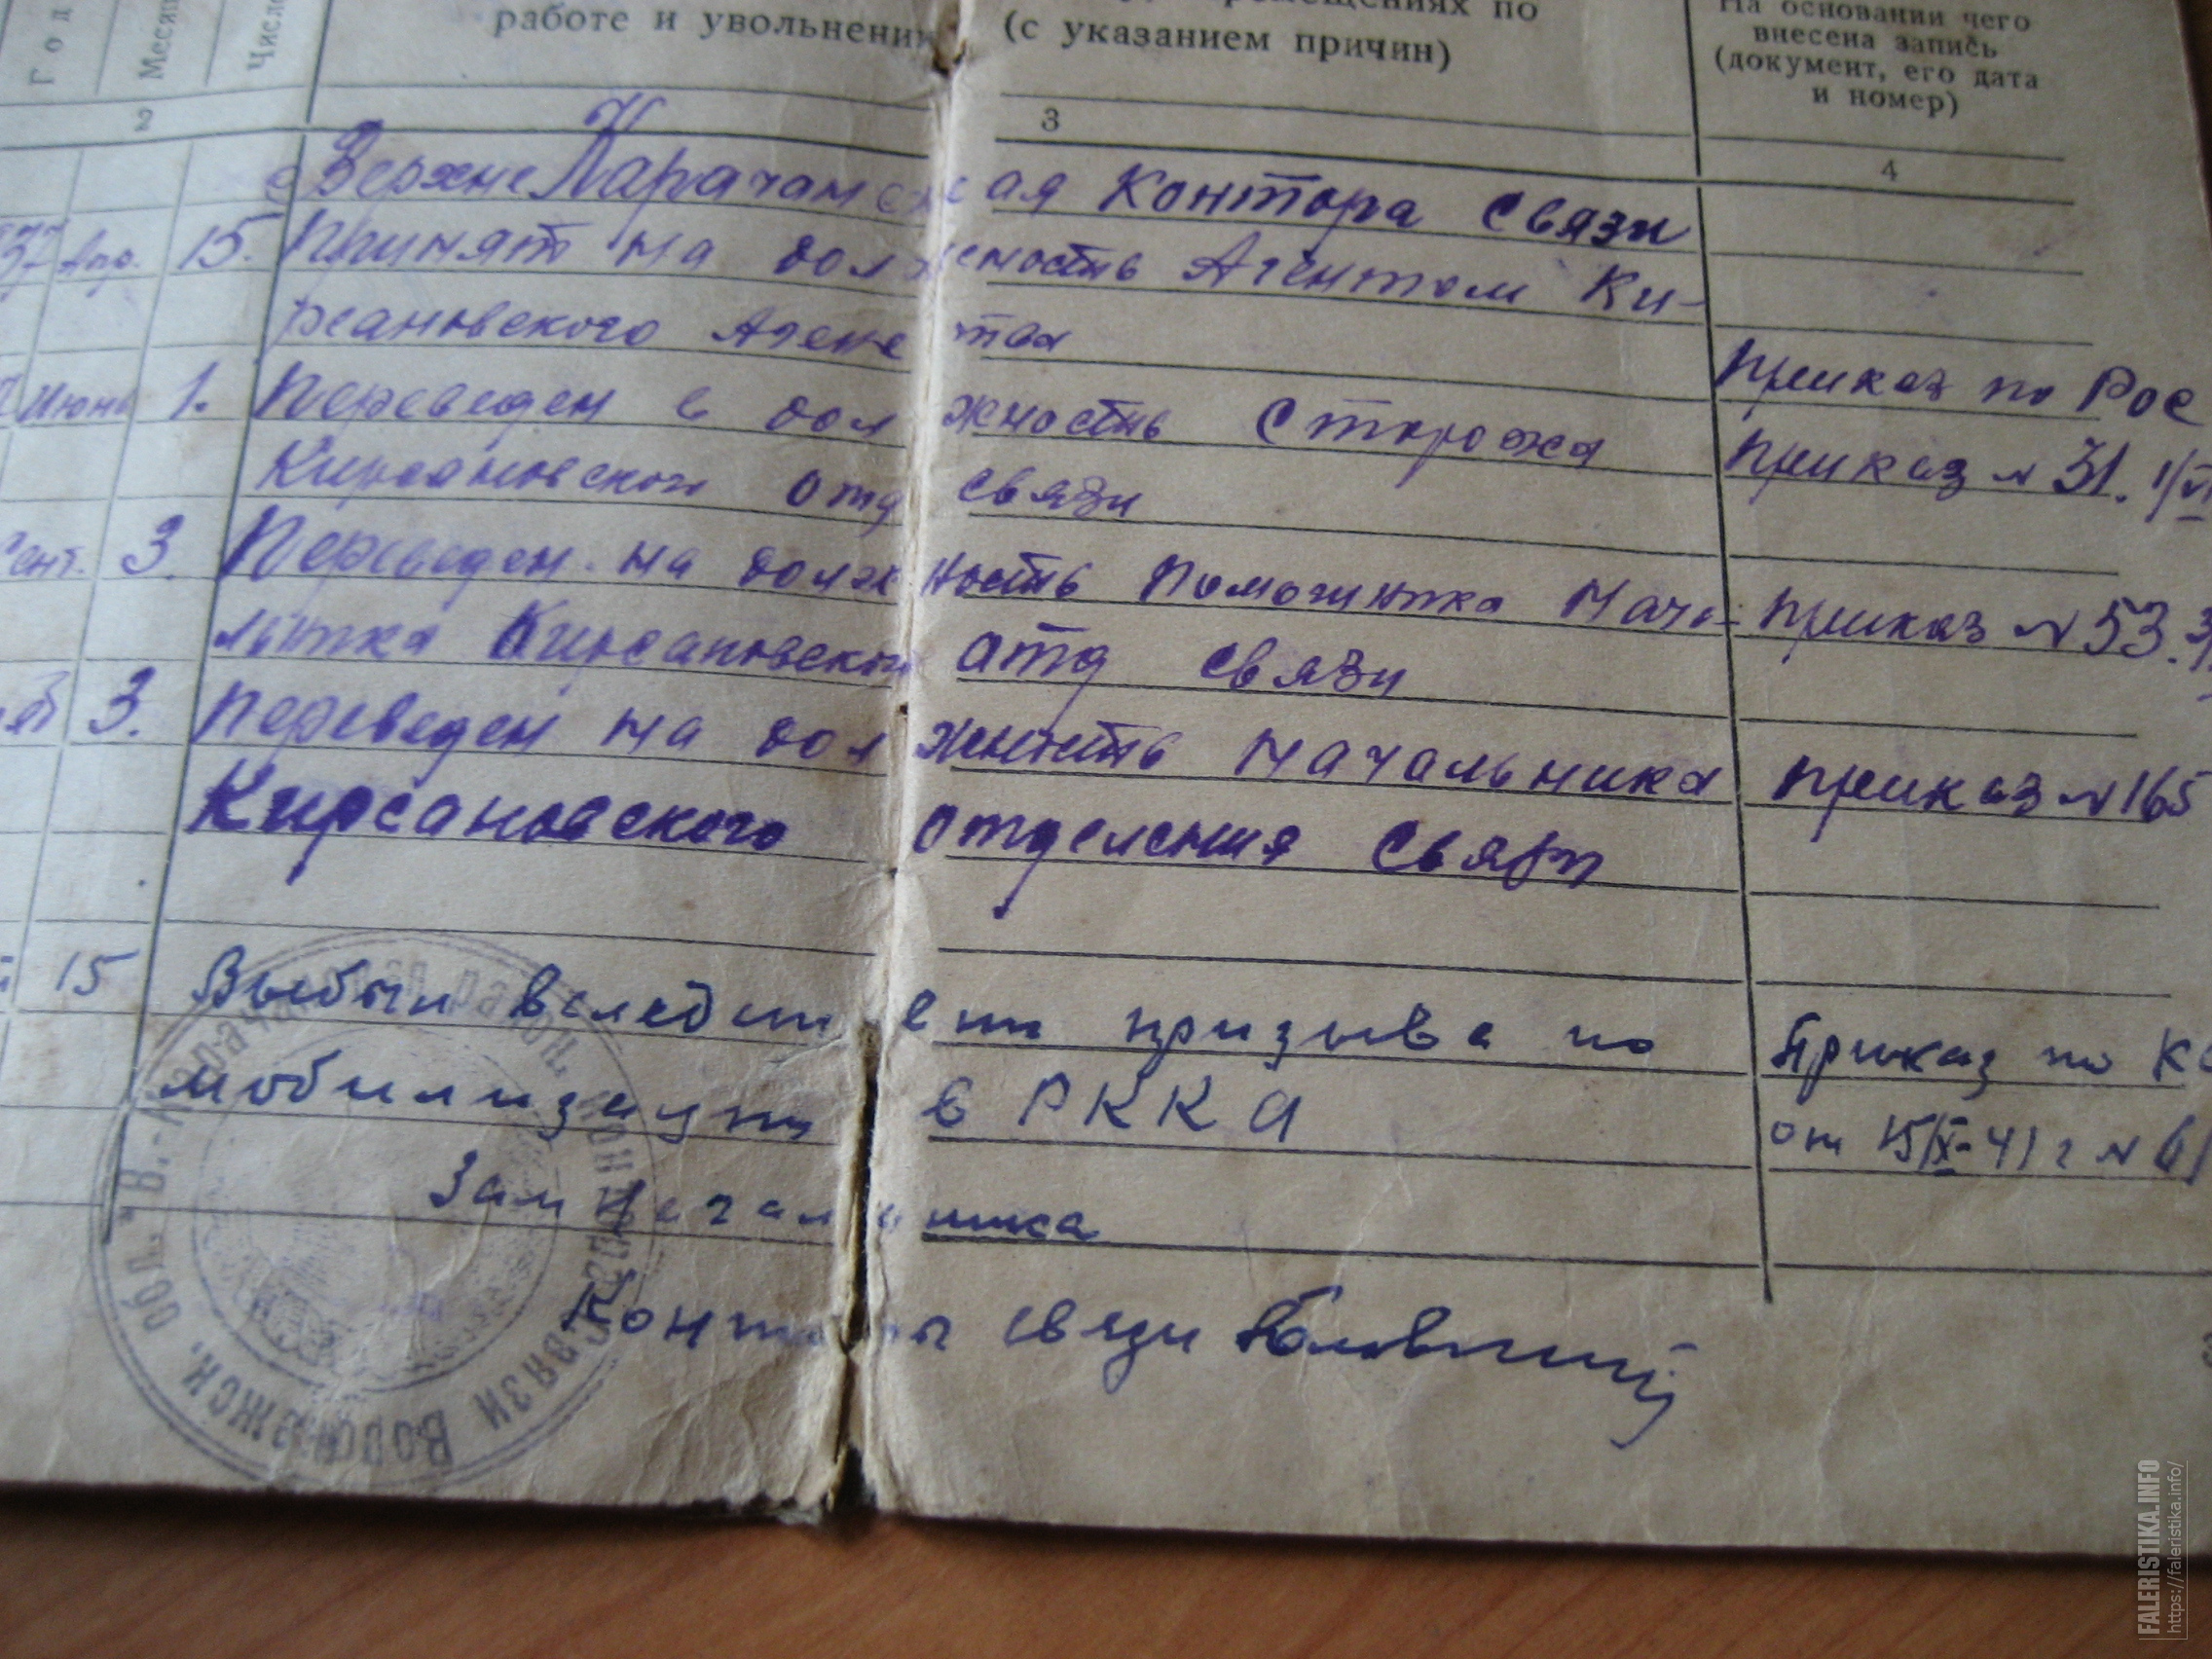 Год Месяц Число
работе и увольнении (с указанием причин)
На основании чего
внесена запись
(документ, его дата
и номер)
2 3 4
Верхне Карачанская Контора Связи
37 Апр. 15. Принят на должность Агентом Ки-
рсановского Агенства Приказ по Рос
Июнь 1. Переведен в должность Сторожа Приказ № 31. 1/VI
Кирсановского отд связи
Сент. 3. Переведен на должность Помошника Нача- Приказ № 53. 3
льника Кирсановского отд связи
3. Переведен на должность Начальника Приказ № 165
Кирсановского отделения Связи
15 Выбыл вследствии призыва по Приказ по
мобилизации в РККА от 15/X-41 г №
Зам Начальника
Конторы связи
Связи Воронежск. обл.
FALERISTIKA.INFO
https://faleristika.info/